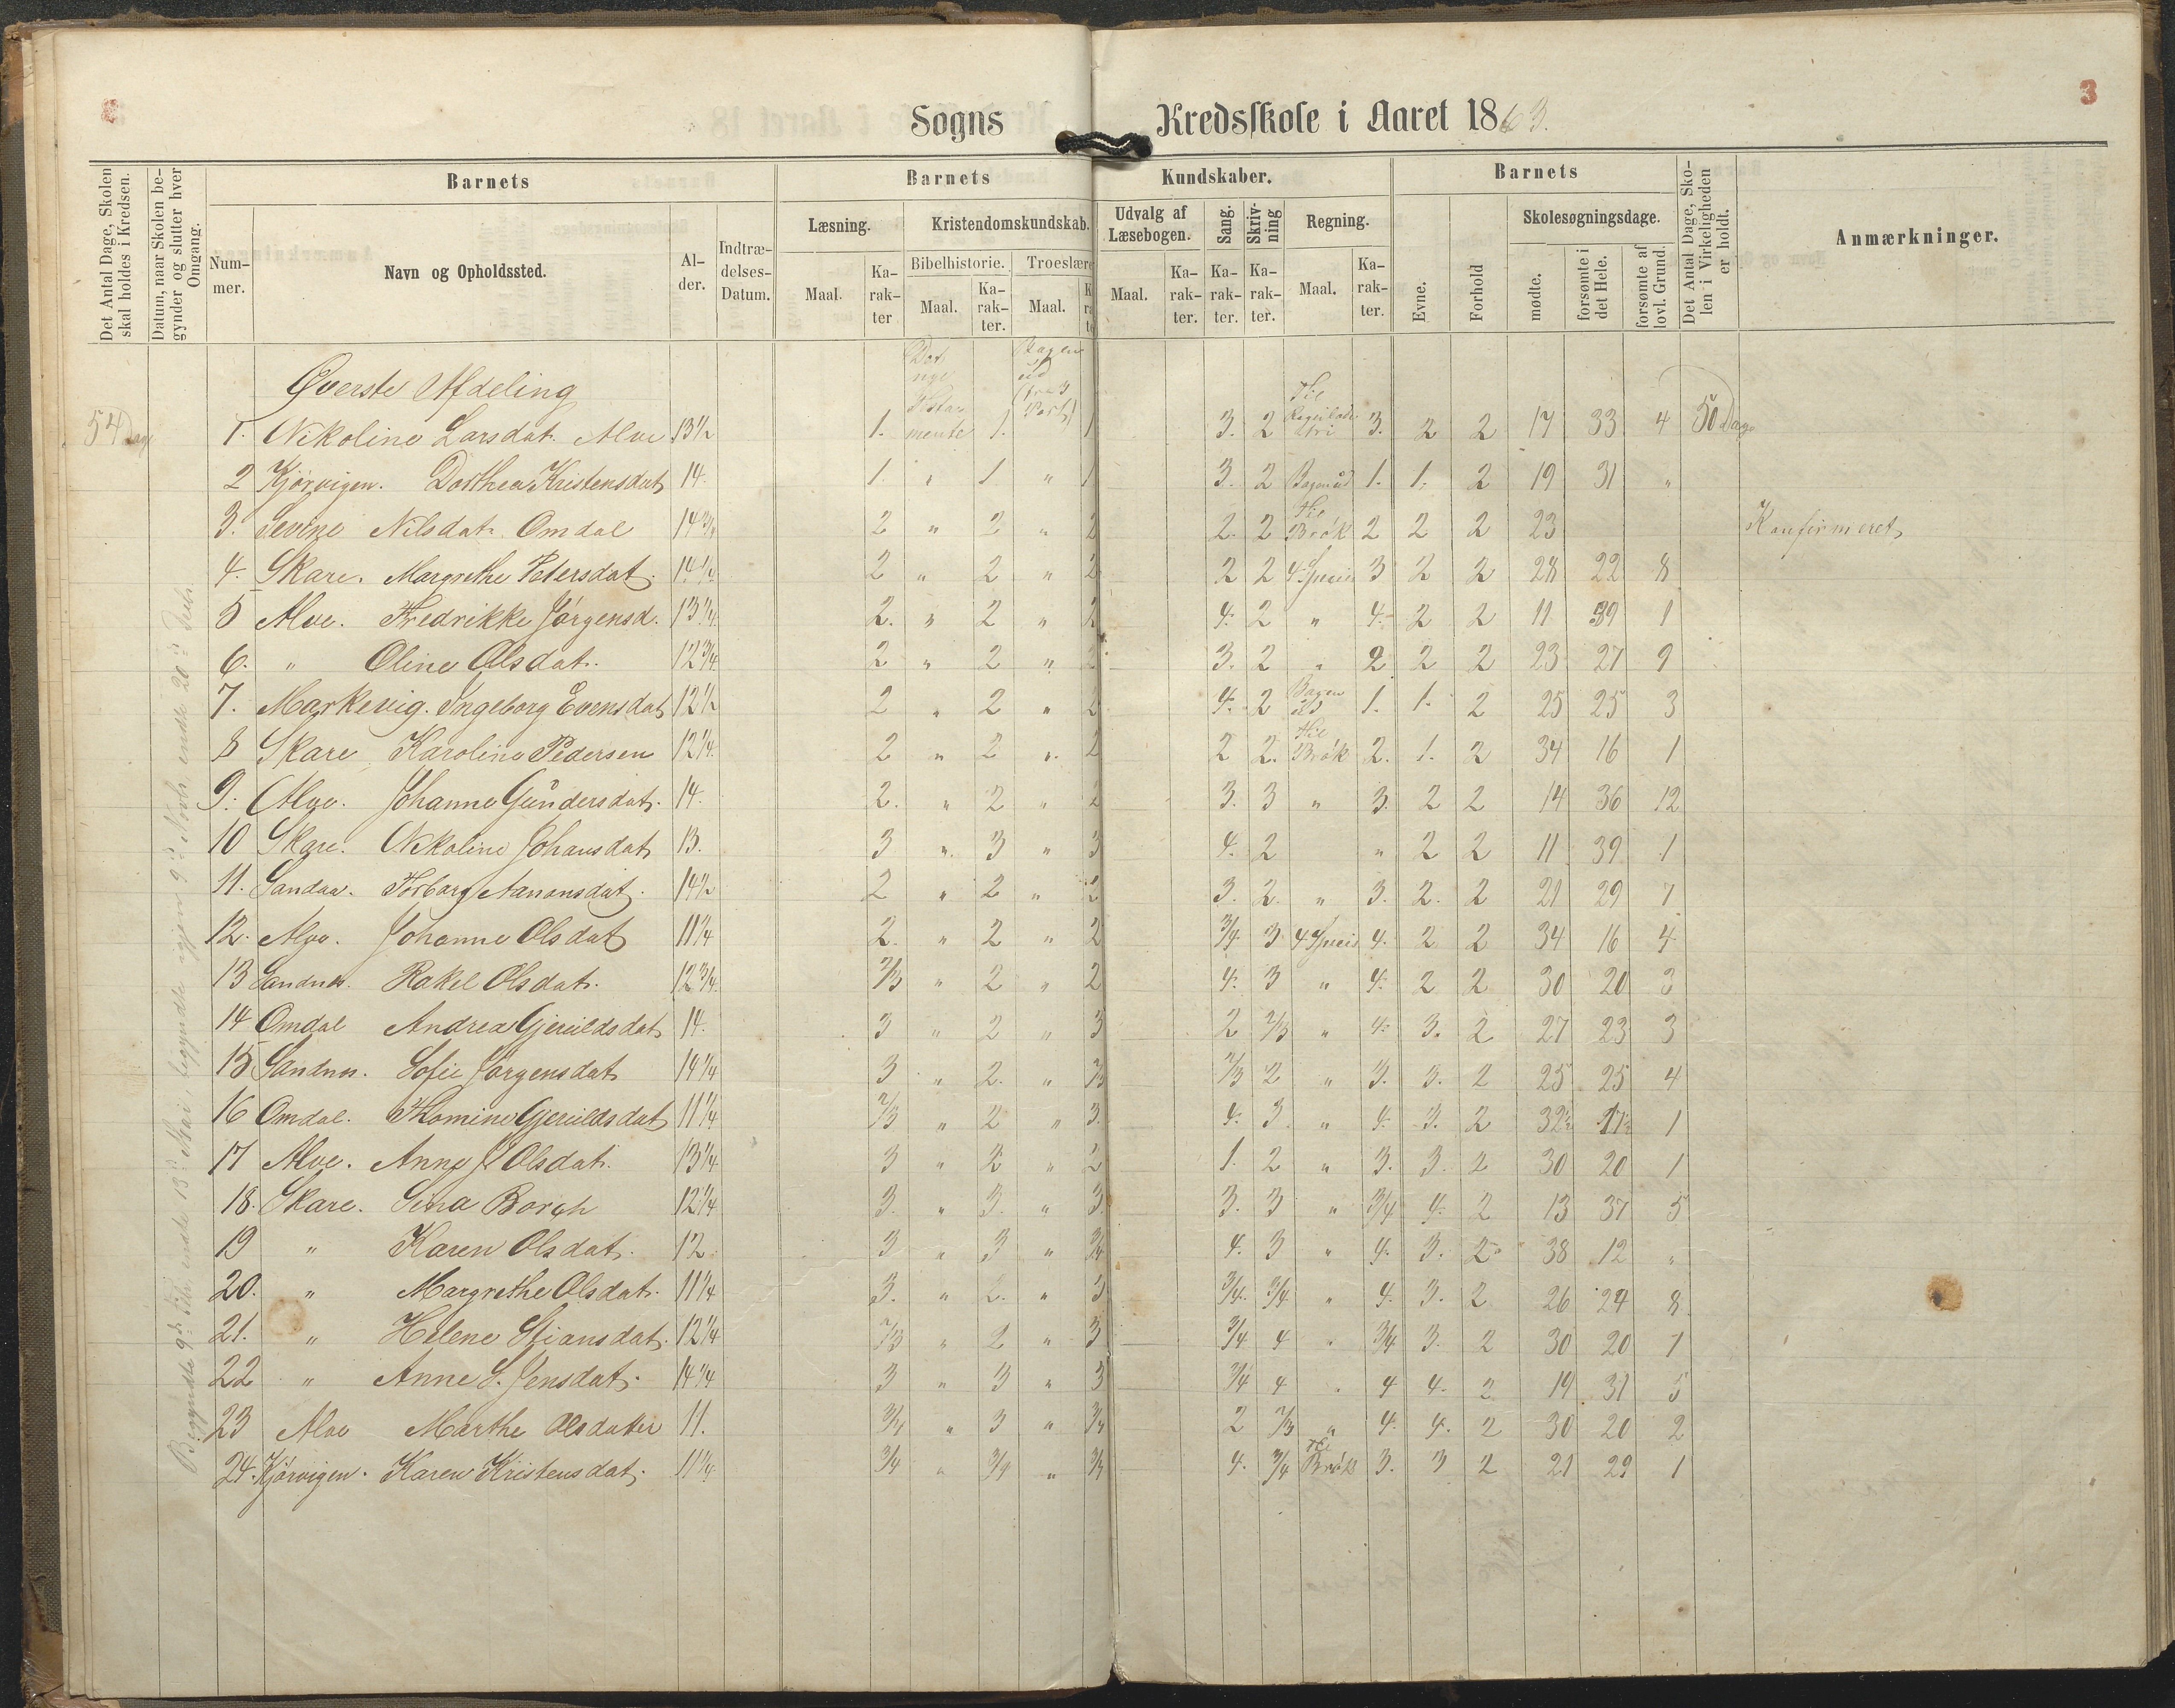 3
Sogns Kredsskole i Aaret 1863.
Det Antal Dage, Skolen skal holdes i Kredsen.
Datum, naar Skolen begynder og slutter hver Omgang.
Barnets
Nummer.
Navn og Opholdssted.
Alder.
Indtrædelses-Datum.
Barnets Kundskaber.
Læsning.
Maal.
Karakter
Kristendomskundskab.
Bibelhistorie.
Maal.
Karakter.
Troeslære
Maal.
Udvalg af Læsebogen.
Maal.
Karakter.
Sang.
Karakter.
Skrivning
Karakter.
Regning.
Maal.
Karakter.
Barnets
Evne.
Forhold
Skolesøgningsdage.
mødte.
forsømte i det Hele.
forsømte af lovl. Grund.
Det Antal Dage, Skolen i Virkeligheden er holdt.
Anmærkninger.
Øverste Afdeling
54 Dage 1. Nikoline Larsdat. Alve 13 1/2 1. 1. 1 3. 2 3. 2 2 17 33 4 50 Dage
2 Kjørvigen. Dorthea Kristensdat 14. 1. " 1 " 1 3. 2 1. 1. 2 19 31 "
3. Sevine Nilsdat. Omdal 14 3/4 2 " 2 " 2 2. 2 Til Brøk 2 2 2 23 Konfirmeret
4. Skare. Margrethe Petersdat. 14 1/4 2 " 2 " 2 2 2 4 Specis 3 2 2 28 22 8
5 Alve. Fredrikke Jørgensd. 13 1/4 2. " 2 " 2 4. 2 " 4. 2 2 11 39 1
6. " Oline Olsdat. 12 3/4 2 " 2 " 2 3. 2 " 2 2 2 23 27 9
7. Markevig. Ingeborg Evensdat 12 1/2 2 " 2 " 2 4. 2 1. 1. 2 25 25 3
8 Skare Karoline Pedersen 12 1/4 2 " 2 " 2 2 2. Til Brøk 2. 1. 2 34 16 1
9. Alve. Johanne Gundersdat. 14. 2. " 2 " 2 3. 3 " 3. 2 2 14 36 12
10 Skare. Nikoline Johansdat 13. 3 " 3 " 3 4. 2 " 2 2 11 39 1
11. Sandaa. Torborg Aanonsdat. 14 1/2 2 " 2 " 2 3. 2. " 3. 2. 2 21 29 7
12. Alve. Johanne Olsdat 11 1/4 2. " 2 " 2 3/4 3 4 Specis 4. 2 2 34 16 4
13 Sandnes. Rakel Olsdat. 12 3/4 2/3 " 2 " 2 4. 3 " 4. 2 2 30 20 3
14 Omdal Andrea Gjeruldsdat 14. 3 " 2 " 3 2 2/3 " 4. 3. 2 27 23 3
15 Sandnes. Sofie Jørgensdat 14 1/4 3 " 2. " 2/3 2/3 2 " 3. 3. 2 25 25 4
16 Omdal. Thomine Gjeruldsdat 11 1/4 2/3 " 2 " 3. 4. 3. " 4. 3. 2 32 1/2 17 1/2 1
17 Alve. Anne J Olsdat. 13 1/4 3 " 2 " 2 1. 2 " 3. 3. 2 30 20 1
18. Skare. Sina Borgh 12 1/4 3. " 3. " 3. 3. 3 " 3/4 4. 2 13 37 5
19 " Karen Olsdat. 12 3 " 3 " 3/4 4. 3 " 4. 3. 2 38 12 "
20. " Margrethe Olsdat. 11 1/4 3. " 2. " 3 3/4. 3/4 " 4. 3. 2 26 24 8
21. " Helene Stiansdat. 12 1/4 2/3 " 2 " 3 3/4 4 " 3/4 3. 2 30 20 7
22 " Anne S. Jensdat. 14 1/4 3 " 3 " 3 3/4 4 " 4 4. 2 19 31 5
23 Alve Marthe Olsdatter 11. 3/4 " 3 " 3/4 2 2/3 " 4. 4. 2 30 20 2
24. Kjørvigen. Karen Kristensdat. 11 1/4 3/4 " 3/4 " 3/4 4. 3/4 Til Brøk 3. 3 2 21 29 1